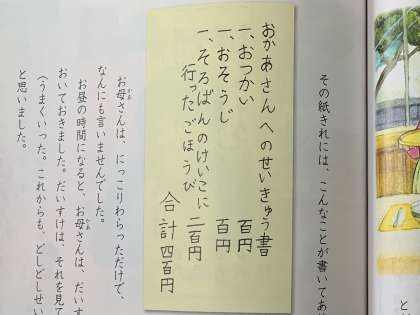 その紙きれには、こんなことが書いてあ
おかあさんへのせいきゅう書
一、おつかい 百円
一、おそうじ 百円
一、そろばんのけいこに
行ったごほうび 二百円
合計四百円
お母さんは、にっこりわらっただけで、
なんにも言いませんでした。
お昼の時間になると、お母さんは、だいす
おいておきました。だいすけは、それを見て
(うまくいった。これからも、どしどしせい
と思いました。